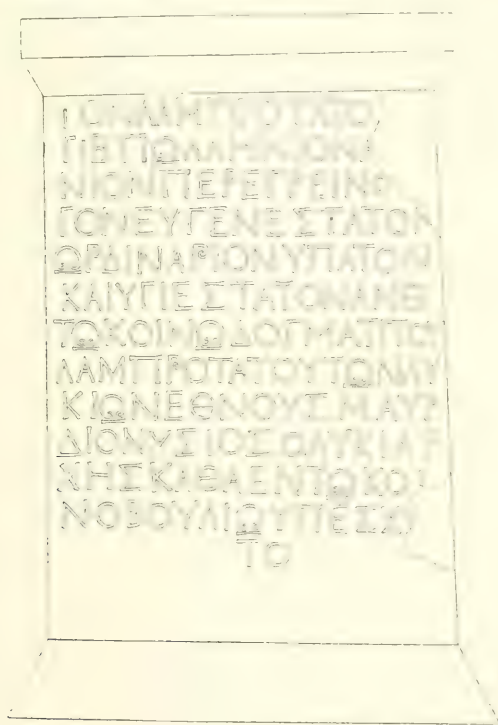 ΤΟΝΛΑΜΠΡΟΤΑΤΟ
ΝΙΟΝΠΕΡΕΓΡΕΙΝΟ
ΤΟΝΕΥΓΕΝΕΣΤΑΤΟΝ
ΩΡΔΙΝΑΡΙΟΝΥΠΑΤΟΝ
ΤΩΚΟΙΝΩΔΟΓΜΑΤΙΤΟ
ΛΑΜΠΡΟΤΑΤΟΥΤΩΝΛΥ
ΚΙΩΝΕΘΝΟΥΣΜΑΥΡ
ΔΙΟΝΥΣΙΟΣΟΛΥΚΙΑΡ
ΧΗΣΚΑΘΑΕΝΤΩΚΟΙ
ΝΟΒΟΥΛΙΩΥΠΕΣΧΕ
ΤΟ